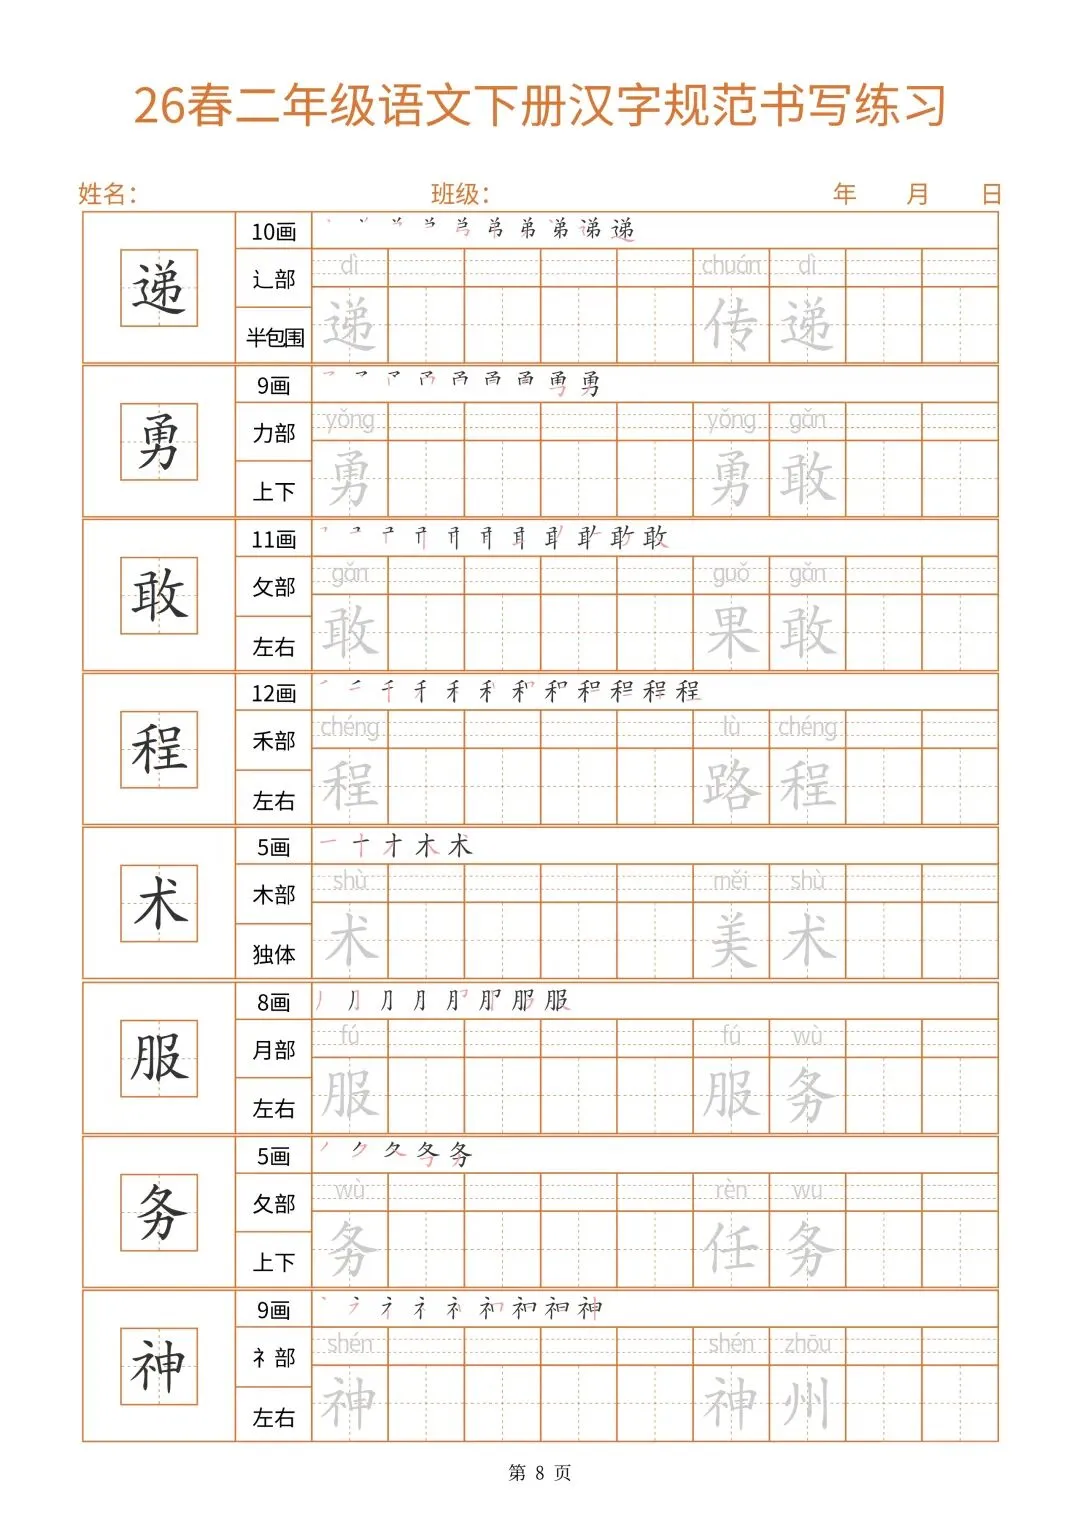 26春二年级语文下册汉字规范书写练习
姓名： 班级： 年 月 日
递
10画
辶部
半包围
dì chuán dì
递 传 递
勇
9画
力部
上下
yǒng yǒng gǎn
勇 勇 敢
敢
11画
攵部
左右
gǎn guǒ gǎn
敢 果 敢
程
12画
禾部
左右
chéng lù chéng
程 路 程
术
5画
木部
独体
shù měi shù
术 美 术
服
8画
月部
左右
fú fú wù
服 服 务
务
5画
夂部
上下
wù rèn wu
务 任 务
神
9画
礻部
左右
shén shén zhōu
神 神 州
第 8 页